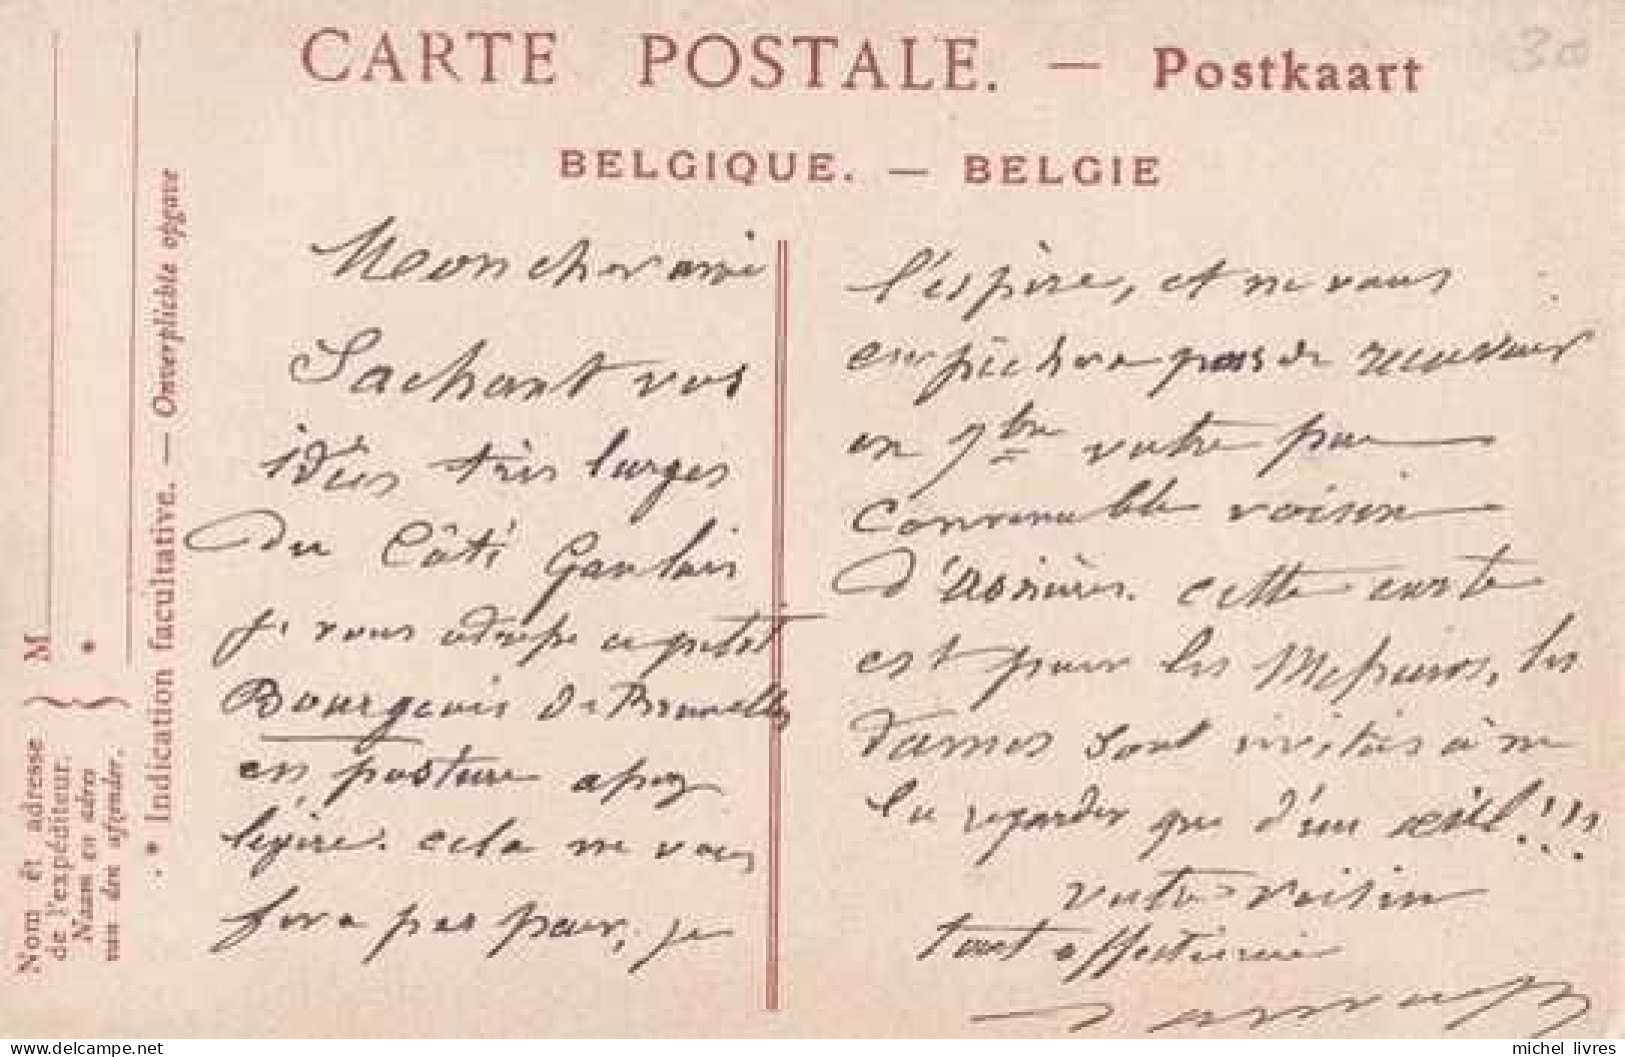 CARTE POSTALE. — Postkaart
300
BELGIQUE. — BELGIE
Nom et adresse de l'expéditeur.
Naam en adres van den afzender.
M
*
* Indication facultative. — Onverplichte opgave
Mon cher ami
Sachant vos
idées très larges
du Côté Gaulois
je vous adresse ce petit
Bourgeois de Bruxelles
en posture assez
légère. cela ne vous
fera pas peur, je
l'espère, et ne vous
empêchera pas de recevoir
en 7bre votre peu
convenable voisin
d'Asnières. Cette carte
est pour les Messieurs, les
dames sont invitées à ne
la regarder que d'un œil!!!
votre voisin
tout affectionné
michel_livres
www.delcampe.net